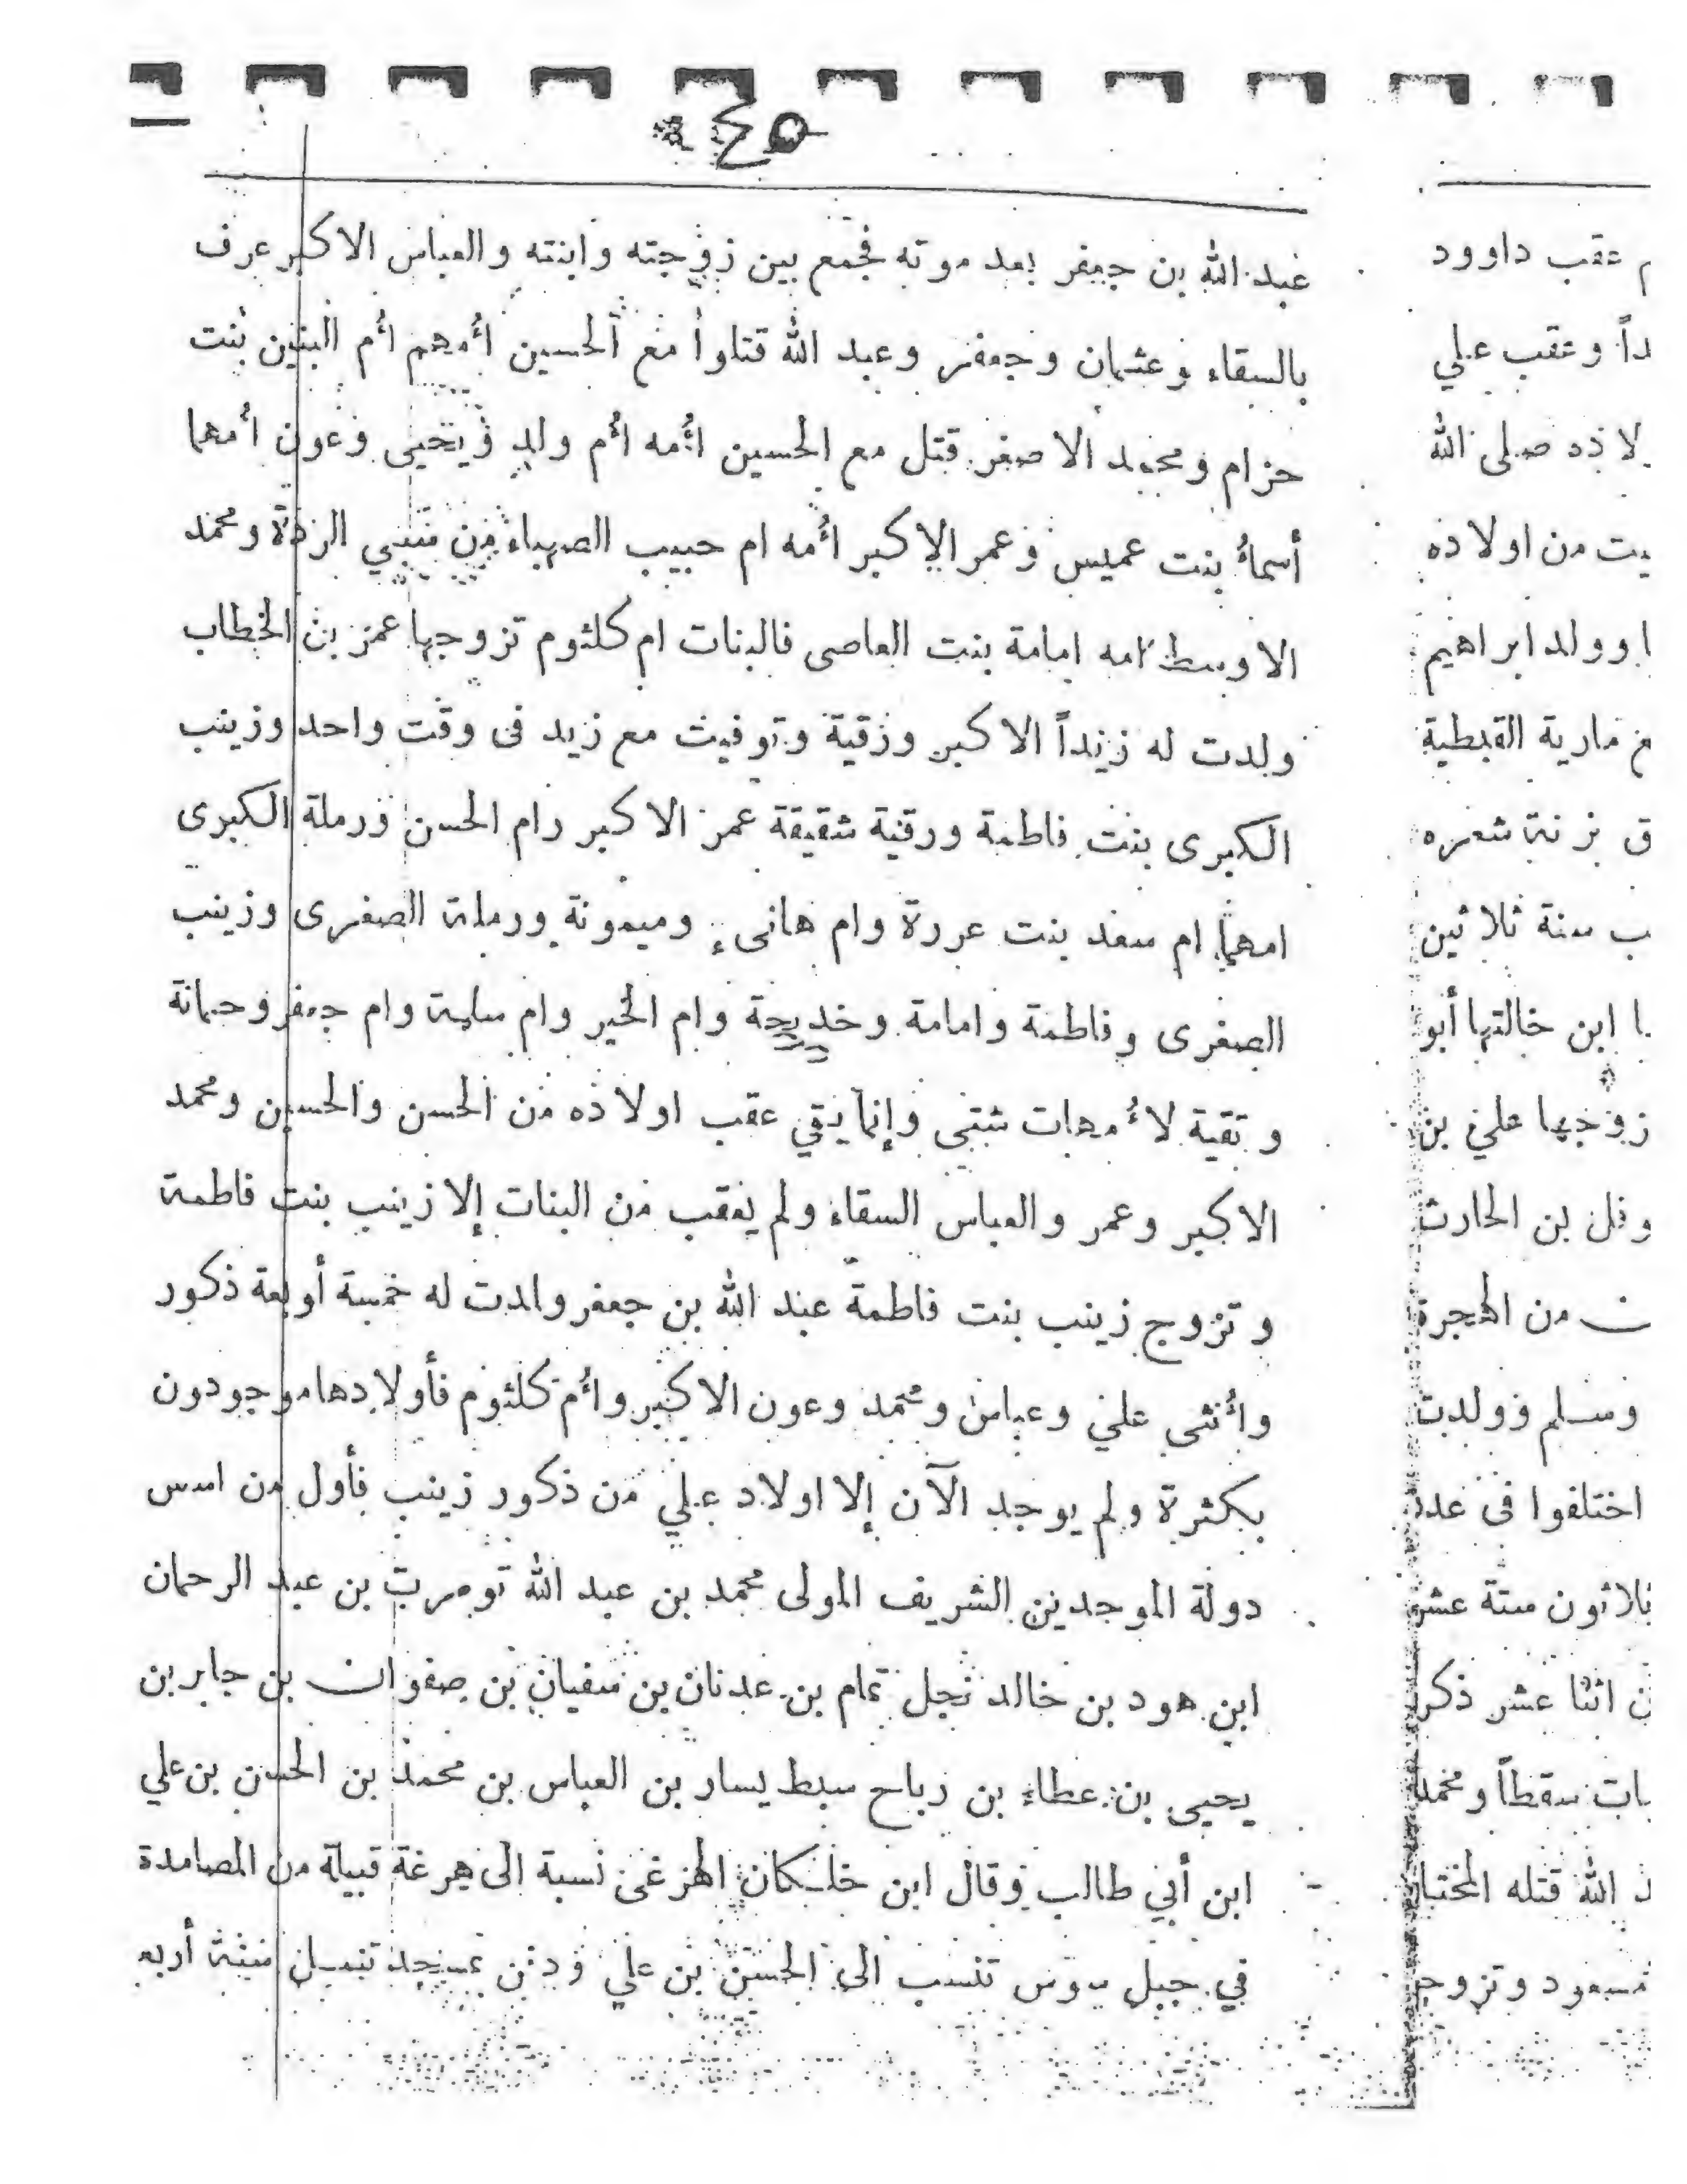 ٤٥
عبد الله بن جعفر بعد موته فجمع بين زوجته وابنته والعباس الاكبر عرف
بالسقاء وعثمان وجعفر وعبد الله قتلوا مع الحسين أمهم أم البنين بنت
حزام ومحمد الاصغر قتل مع الحسين أمه أم ولد ويحيى وعون أمهما
أسماء بنت عميس وعمر الاكبر أمه ام حبيب الصهباء من سبي الردة ومحمد
الاوسط امه امامة بنت العاصى فالبنات ام كلثوم تزوجها عمر بن الخطاب
ولدت له زيداً الاكبر ورقية وتوفيت مع زيد فى وقت واحد وزينب
الكبرى بنت فاطمة ورقية شقيقة عمر الاكبر وام الحسن ورملة الكبرى
امهما ام سعد بنت عروة وام هانىء وميمونة ورملة الصغرى وزينب
الصغرى وفاطمة وامامة وخديجة وام الخير وام سلمة وام جعفر وجمانة
وتقية لأمهات شتى وإنما بقي عقب اولاده من الحسن والحسين ومحمد
الاكبر وعمر والعباس السقاء ولم يعقب من البنات إلا زينب بنت فاطمة
وتزوج زينب بنت فاطمة عبد الله بن جعفر ولدت له خمسة أربعة ذكور
وأنثى علي وعباس ومحمد وعون الاكبر وأم كلثوم فأولادها موجودون
بكثرة ولم يوجد الآن إلا اولاد علي من ذكور زينب فأول من اسس
دولة الموحدين الشريف المولى محمد بن عبد الله تومرت بن عبد الرحمان
ابن هود بن خالد نجل تمام بن عدنان بن سفيان بن صفوان بن جابر بن
يحيى بن عطاء بن رباح سبط يسار بن العباس بن محمد بن الحسن بن علي
ابن أبي طالب وقال ابن خلكان الهرغى نسبة الى هرغة قبيلة من المصامدة
في جبل سوس تنسب الى الحسن بن علي ودفن بمسجد تنميل سنة أربع
عقب داوود
وعقب علي
صلى الله
من اولاده
وولد ابراهيم
مارية القبطية
بزنة شعره
سنة ثلاثين
ابن خالتها أبو
زوجها علي بن
بن الحارث
من الهجرة
وسلم وولدت
اختلفوا فى عدد
ثلاثون ستة عشر
اثنا عشر ذكر
سقطاً ومحمد
الله قتله المختار
مسعود وتزوج